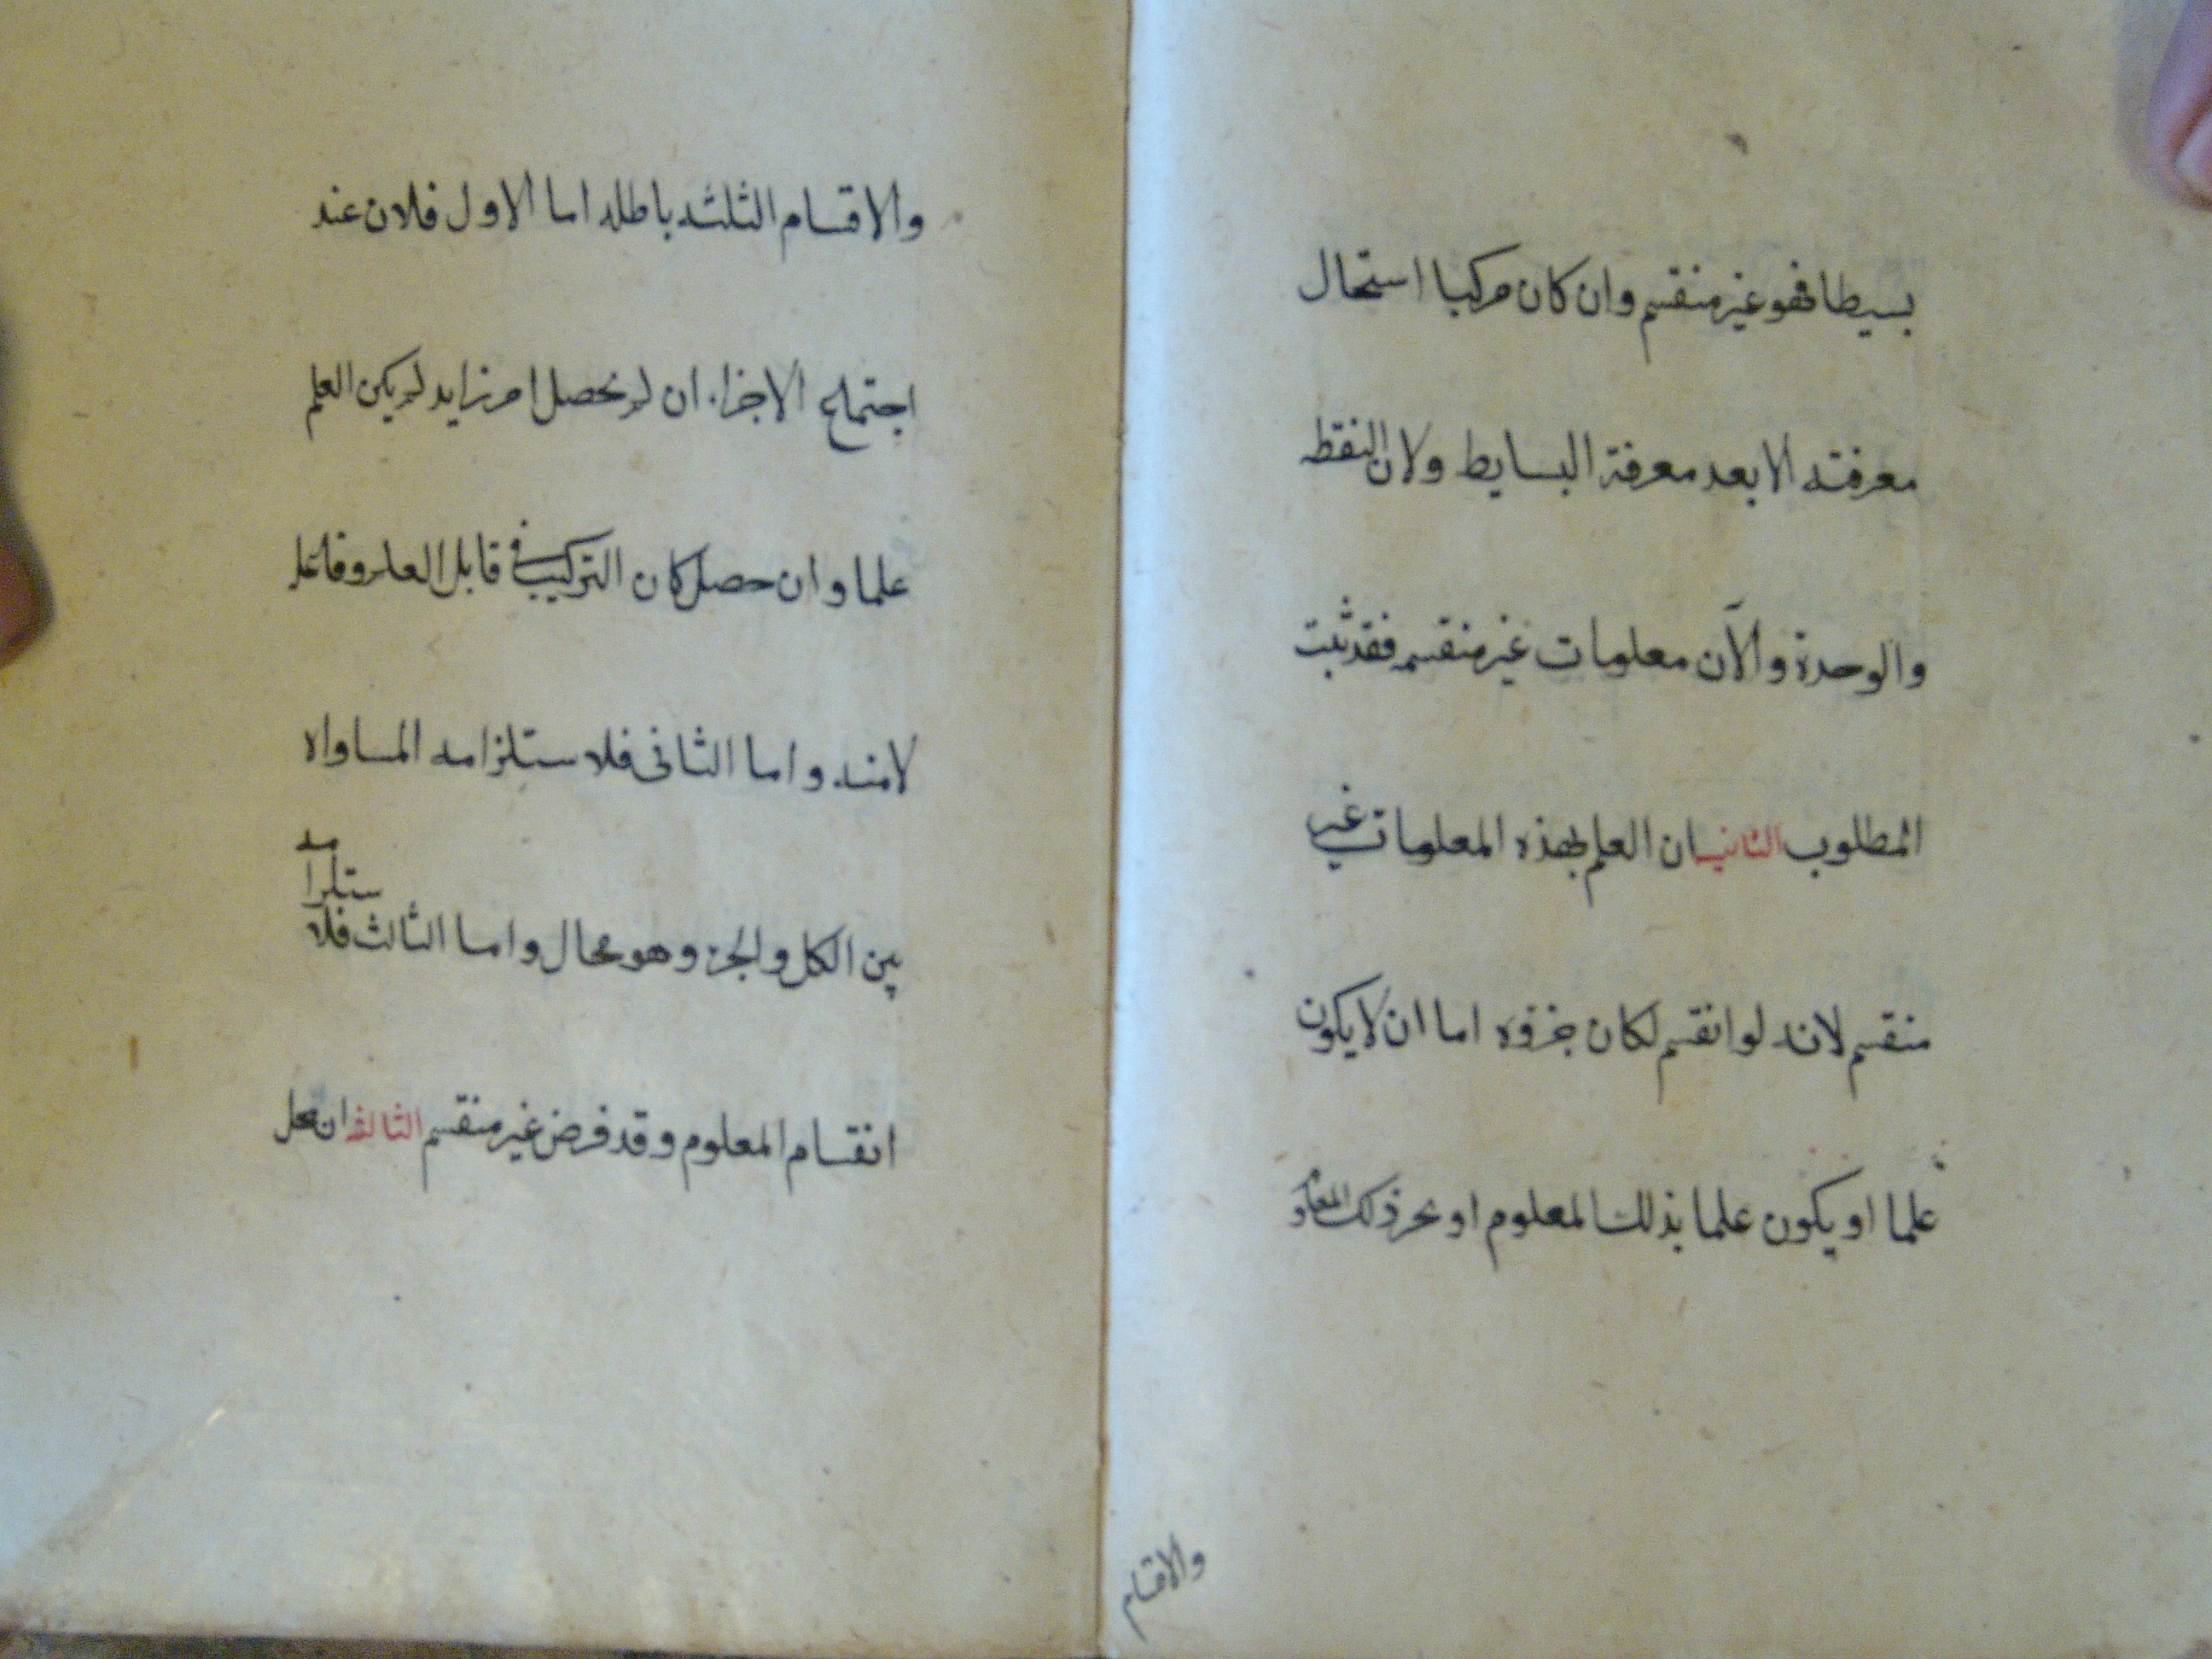 بسيطا فهو غير منقسم وان كان مركبا استحال
معرفته الا بعد معرفة البسايط ولان النقطه
والوحدة والآن معلومات غير منقسمه فقد ثبت
المطلوب الثانيه ان العلم بهذه المعلومات غير
منقسم لانه لو انقسم لكان جزؤه اما ان لا يكون
علما او يكون علما بذلك المعلوم او بجزء ذلك المعلوم
والاقسام
والاقسام الثلثه باطله اما الاول فلان عند
اجتماع الاجزاء ان لم يحصل امر زايد لم يكن العلم
علما وان حصل كان التركيب في قابل العلم وفاعله
لا منه واما الثانى فلاستلزامه المساواه
بين الكل والجزء وهو محال واما الثالث فلاستلزامه
انقسام المعلوم وقد فرض غير منقسم الثالثه ان محل